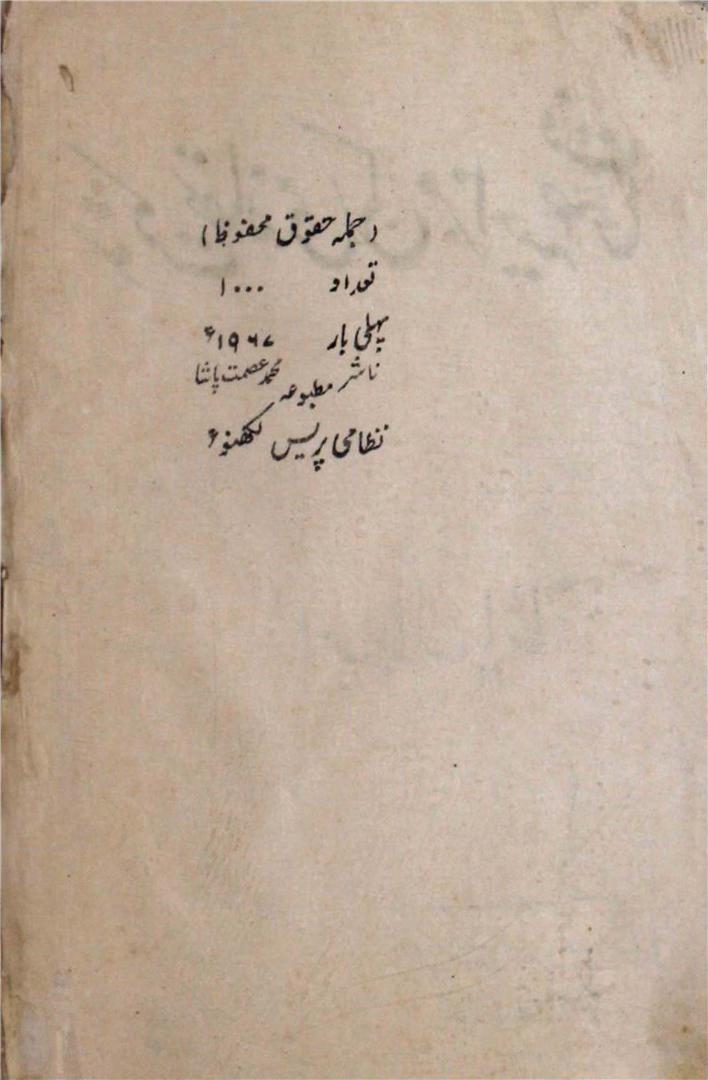 (جملہ حقوق محفوظ)
تعداد ۱۰۰۰
پہلی بار ۱۹۶۷ء
ناشر محمد عصمت پاشا
مطبوعہ
نظامی پریس لکھنؤ